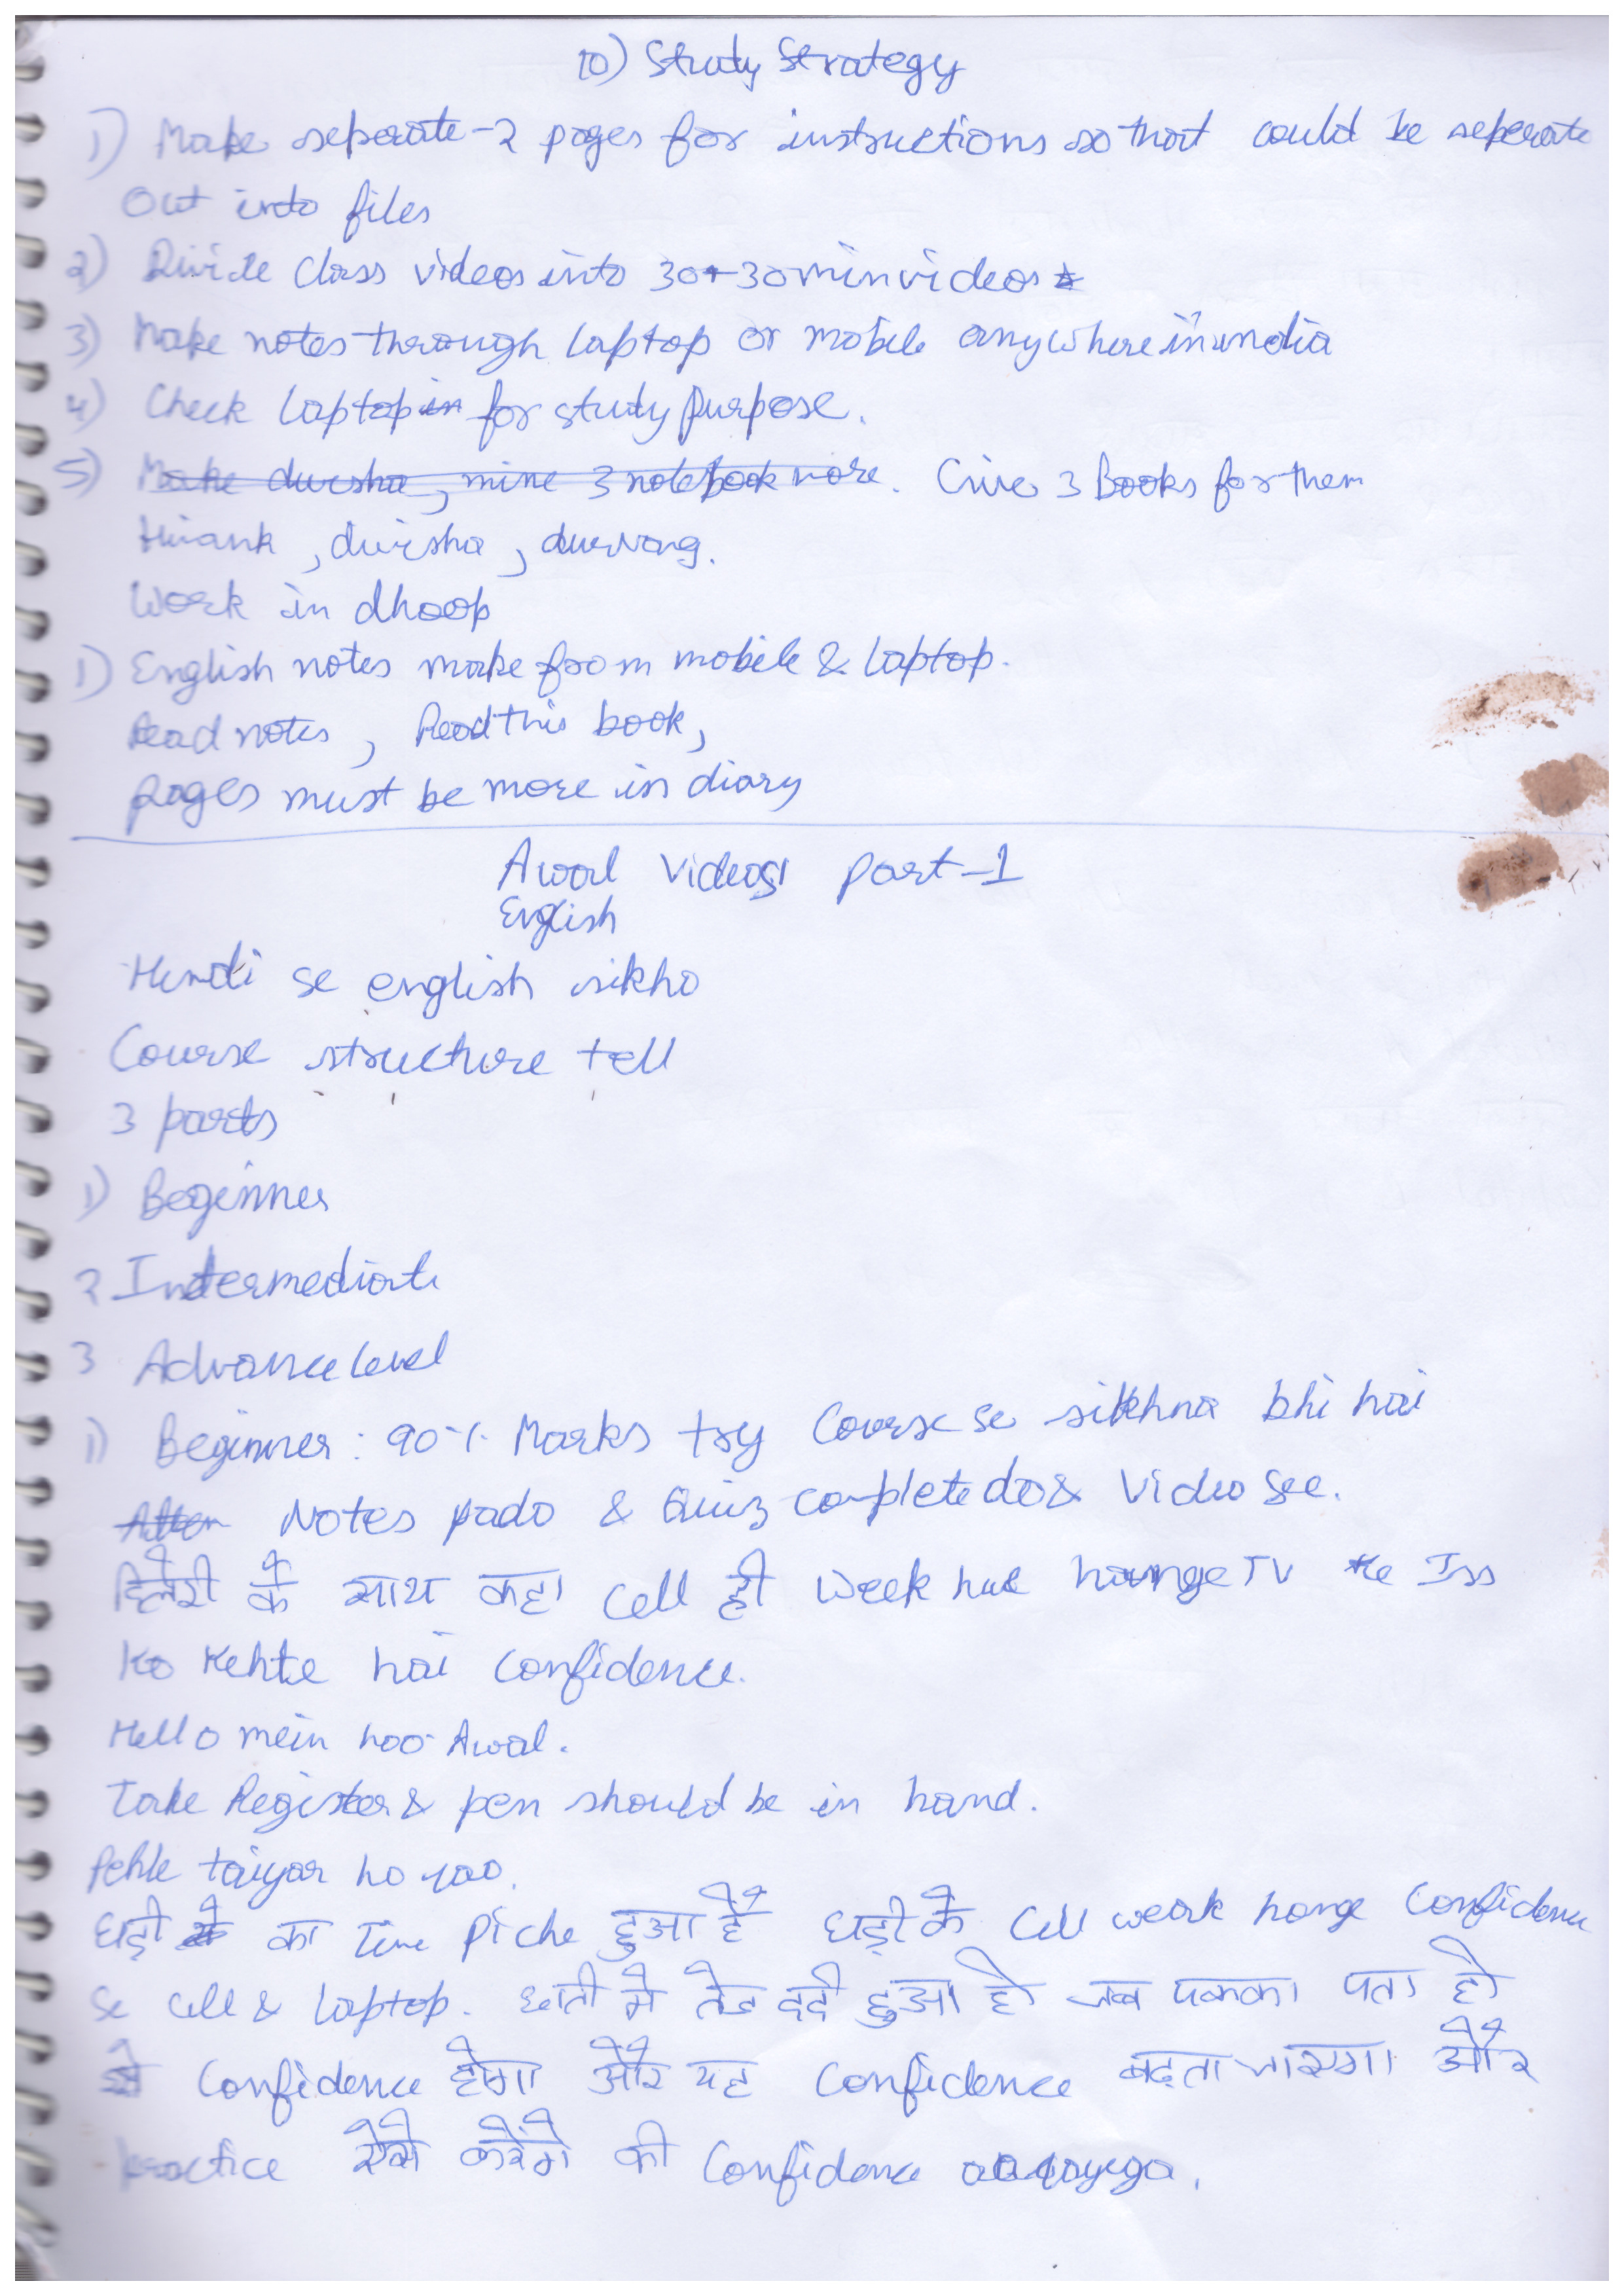 10) Study Strategy
1) Make seperate-2 pages for instructions so that could be seperate
out into files
2) Divide class videos into 30+30 min videos
3) Make notes through laptop or mobile anywhere in india
4) Check laptop for study purpose.
5) Make dwisha, mine 3 notebook more. Give 3 Books for them
, dwisha,
Work in dhoop
1) English notes make from mobile & laptop.
Read notes, Read this book,
pages must be more in diary
Awal Videos Part-1
English
Hindi se english sikho
Course structure tell
3 parts
1) Beginner
2 Intermediate
3 Advance level
1) Beginner: 90% Marks try Course se sikhna bhi hai
Notes pado & Quiz complete do & Video See.
के साथ कहा cell ही week TV ke Iss
ko kehte hai confidence.
Hello mein hoo Awal.
Take Register & pen should be in hand.
Pehle taiyar ho jao.
घड़ी का Time Piche हुआ है घड़ी के Cell weak honge Confidence
se cell & laptop. छाती मे तेज दर्द हुआ हो जब पक्का पता हो
Confidence होगा और यह Confidence बढ़ता जाएगा और
practice ऐसे करेंगे की Confidence